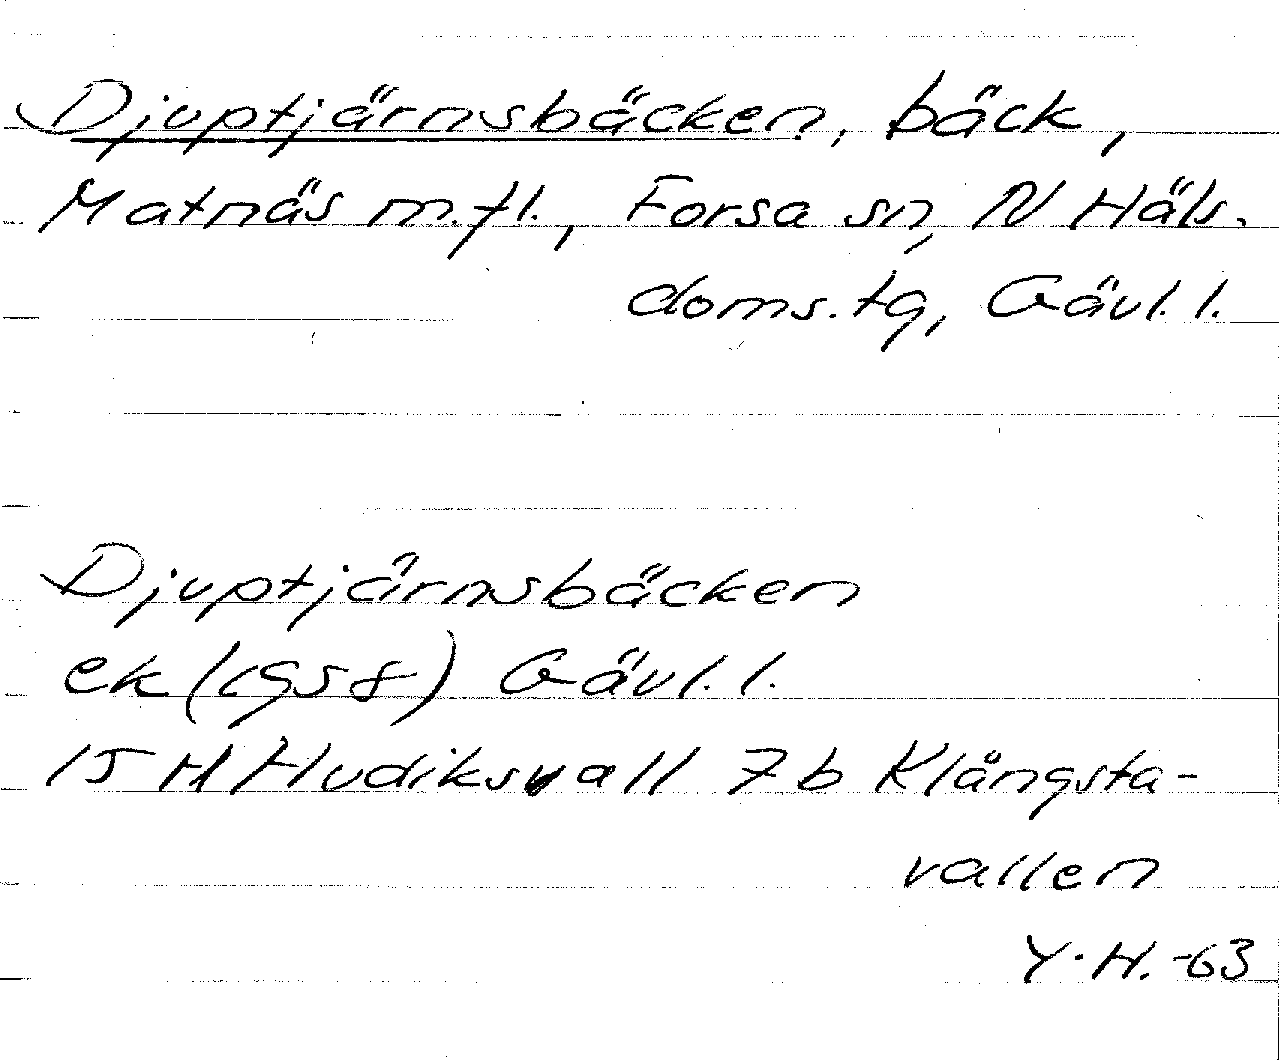 Djuptjärnsbäcken, bäck,
Matnäs m.fl., Forsa sn, N Häls.
doms.tg, Gävl. l.
Djuptjärnsbäcken
ek (1958) Gävl. l.
15 H Hudiksvall 7b Klångsta-
vallen
Y.H. -63